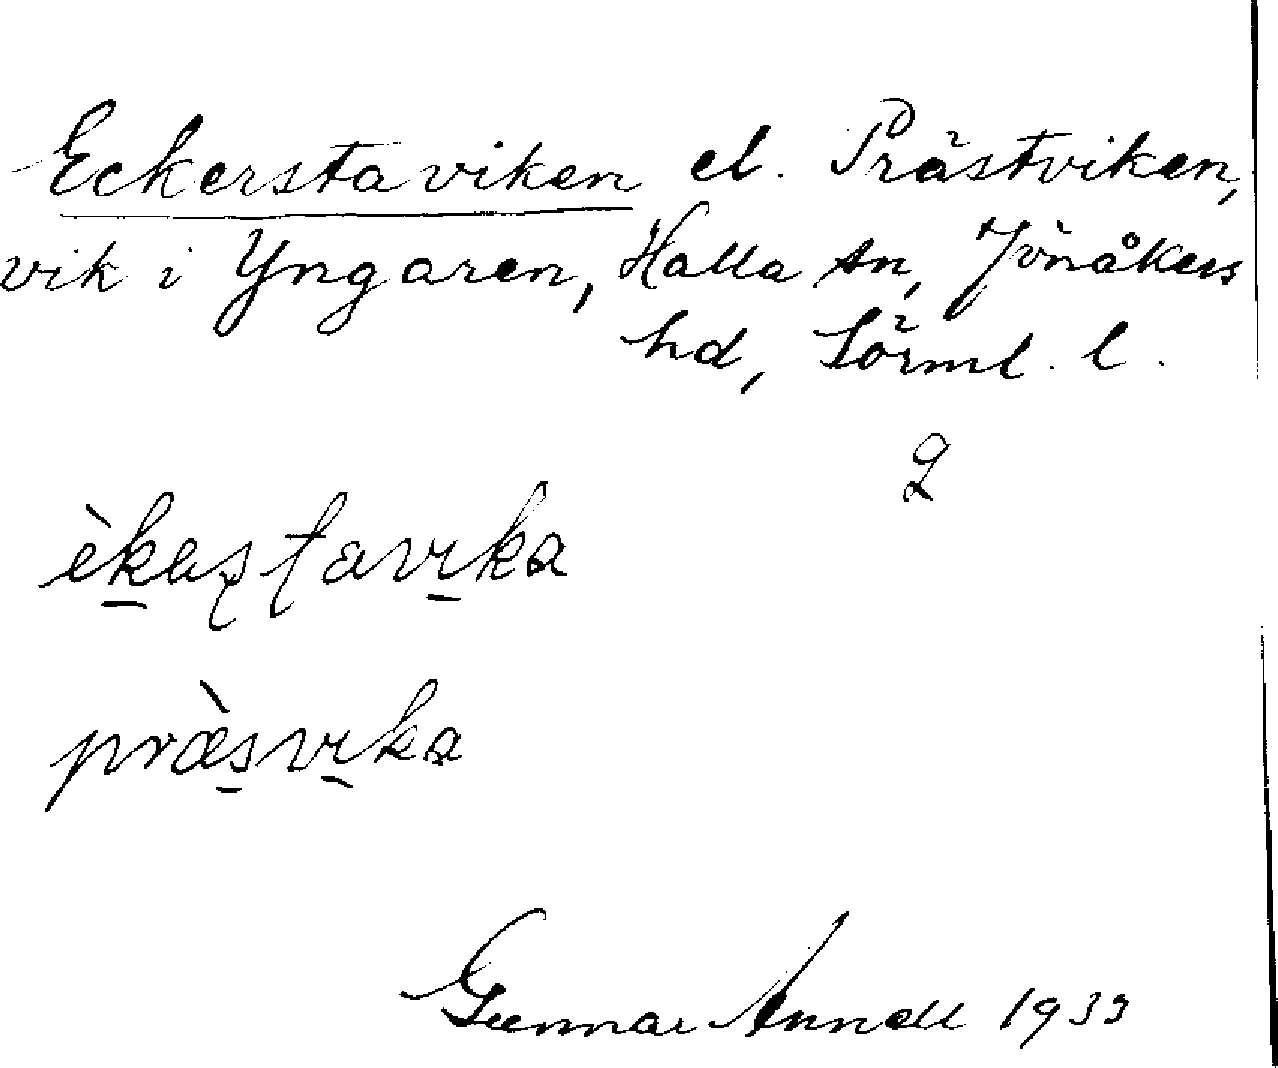 Eckerstaviken el. Prästviken,
vik i Yngaren, Halla sn, Jönåkers
hd, Sörml. l.
2
èkaştavika
præ̀svika
Gunnar Annell 1933